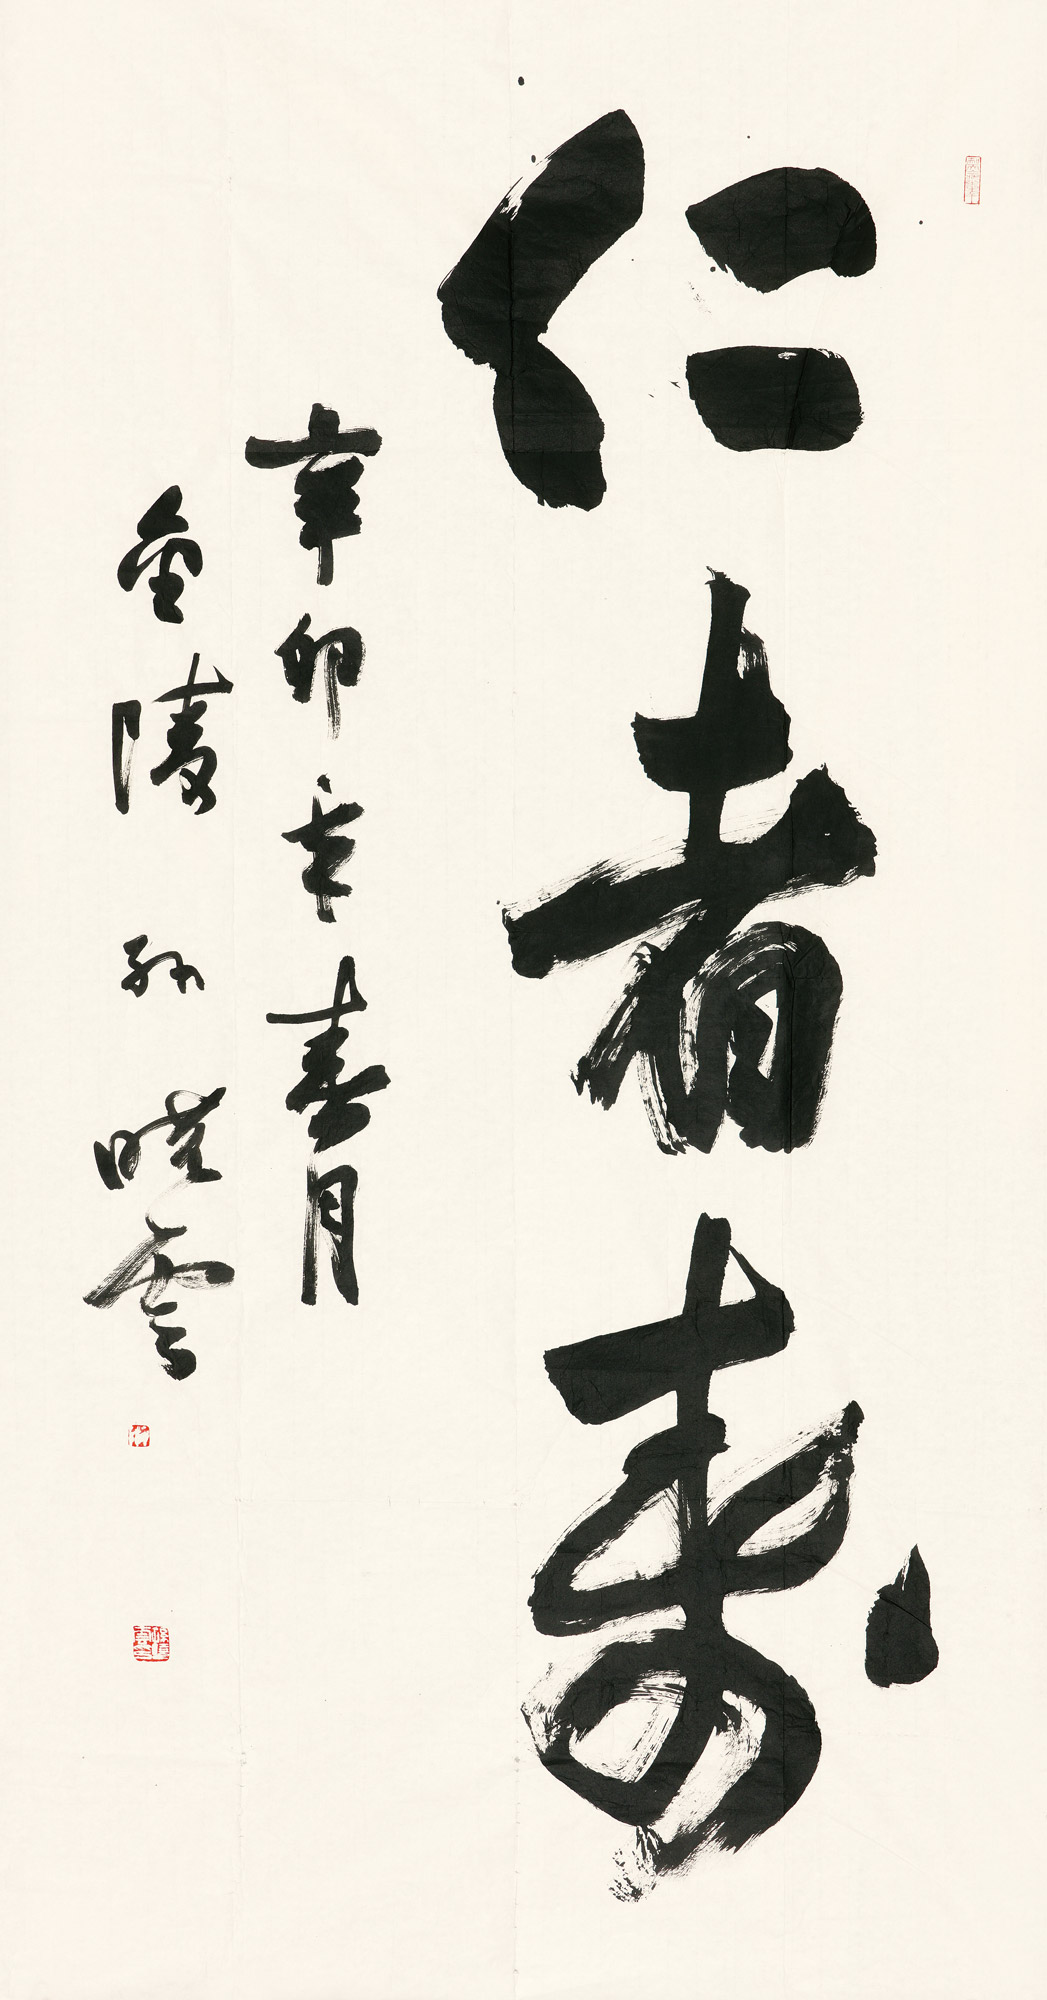 仁者寿
辛卯年春月
金陵孙晓云